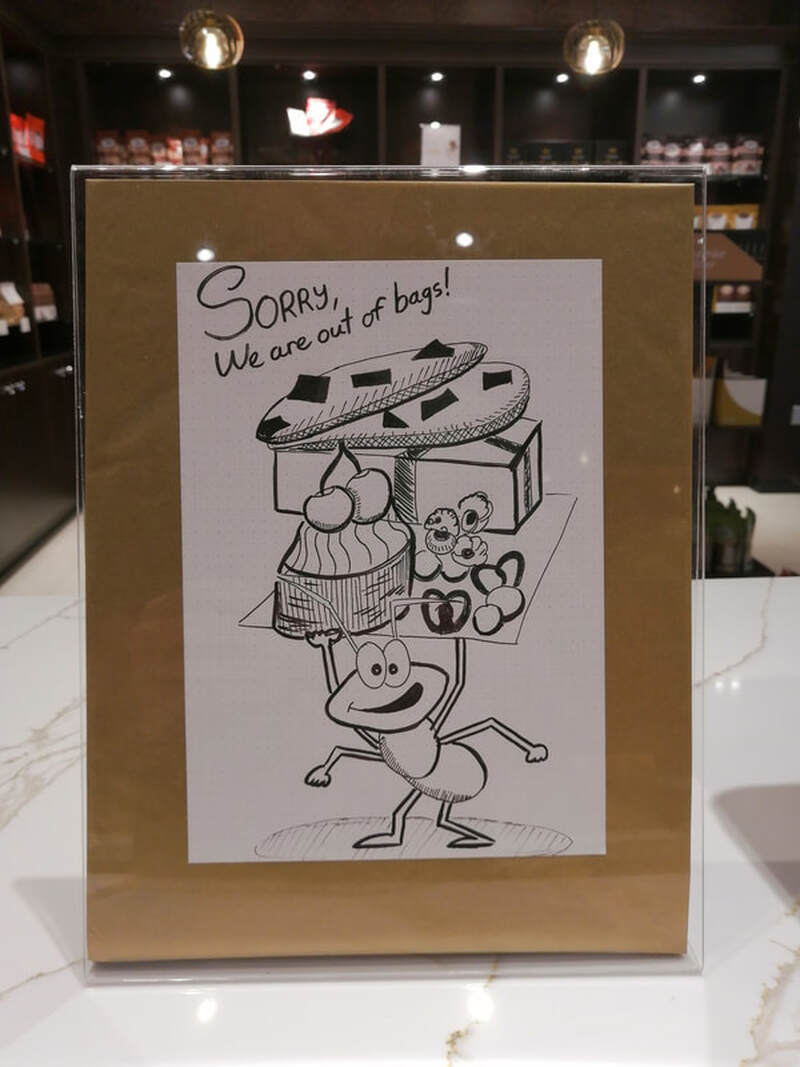 SORRY,
We are out of bags!